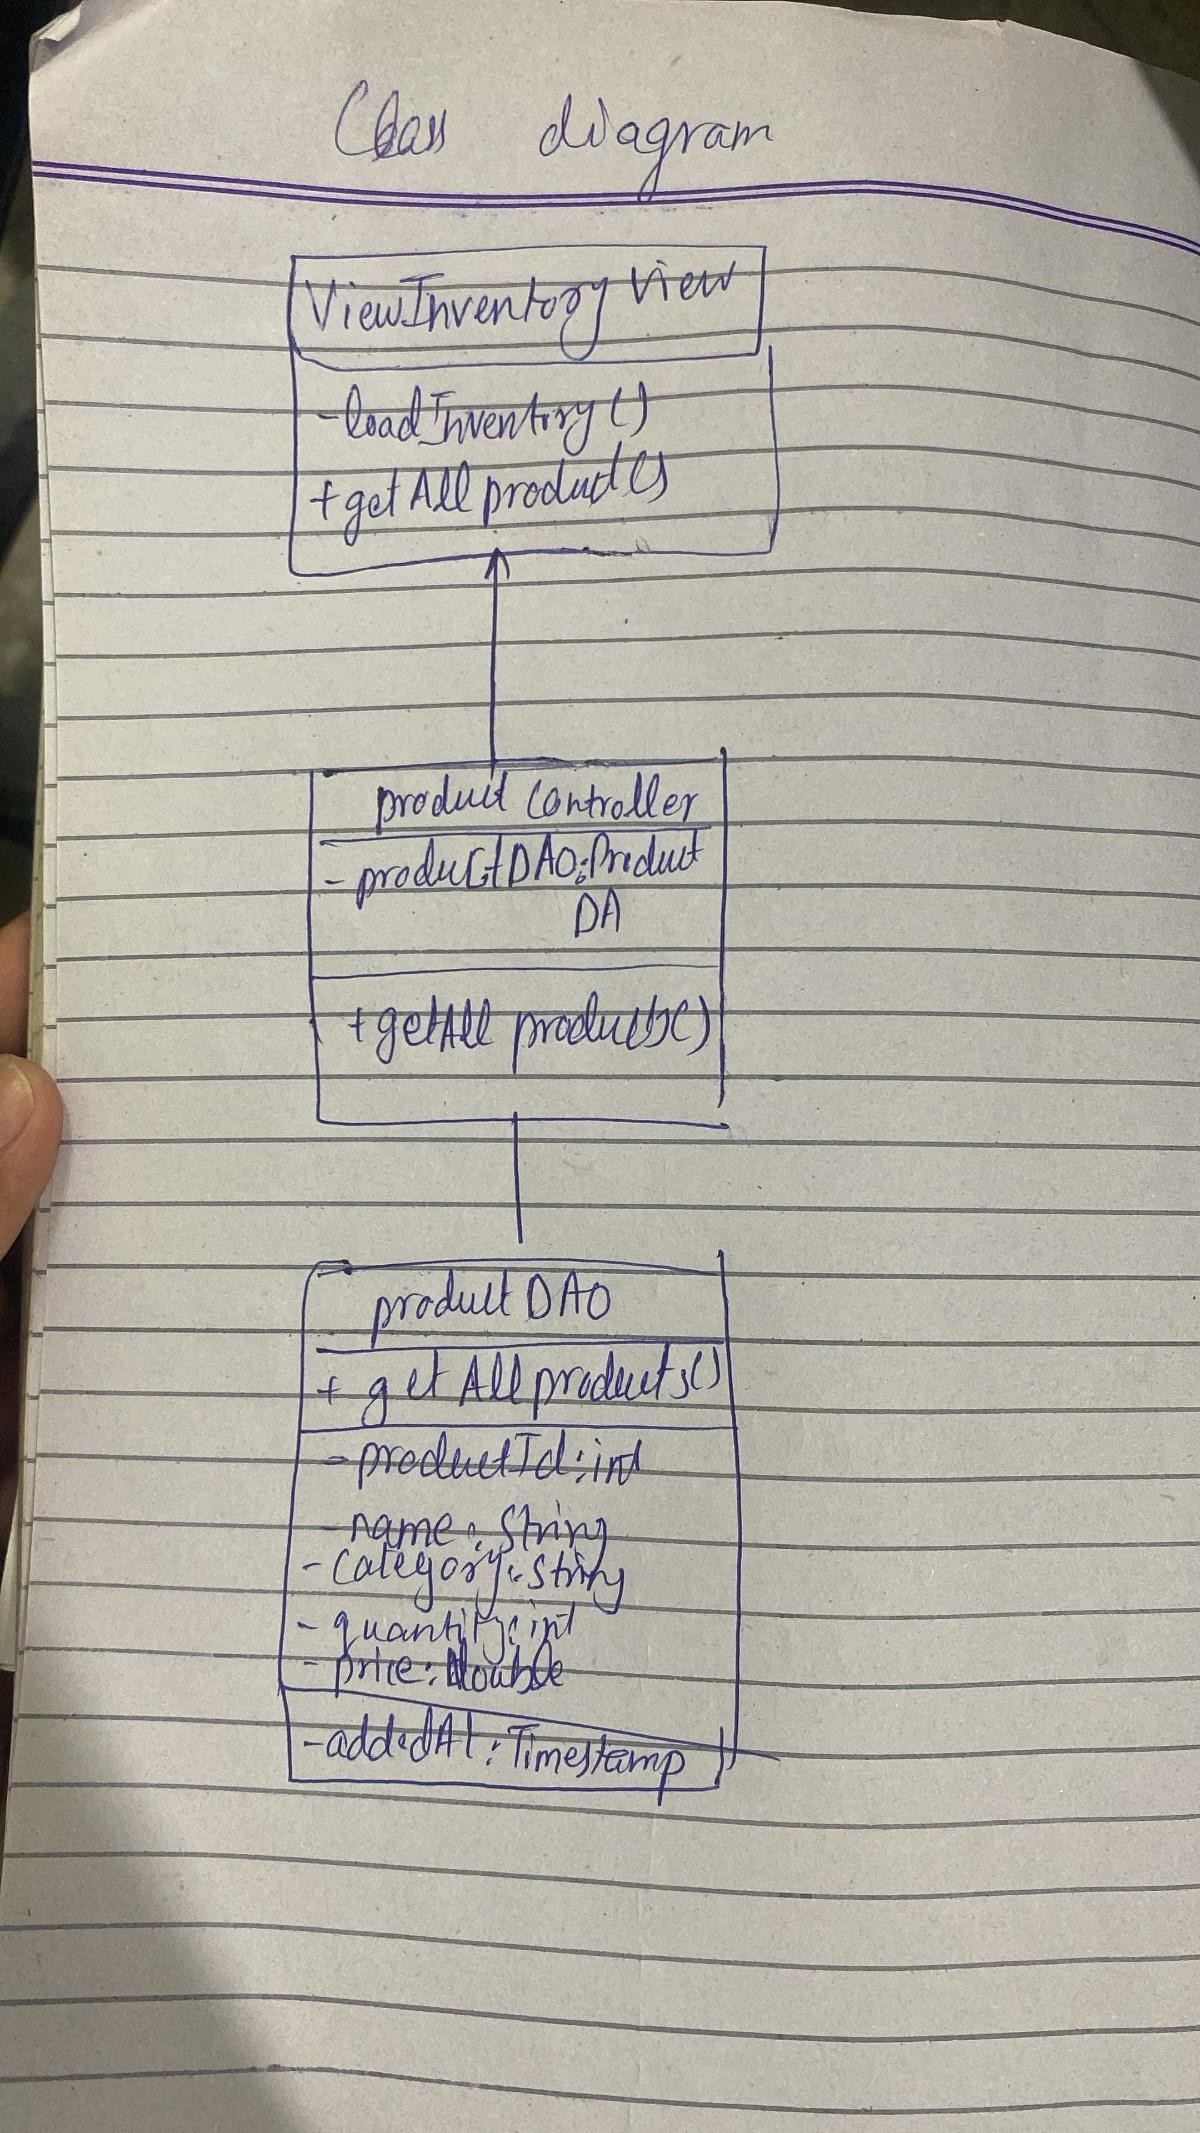 Class diagram
ViewInventory View
- loadInventory()
+ getAll product()
product Controller
- productDAO: Product
DA
+ getAll products()
productDAO
+ getAllproducts()
- productId: int
- name: String
- category: String
- quantity: int
- price: double
- addedAt: Timestamp